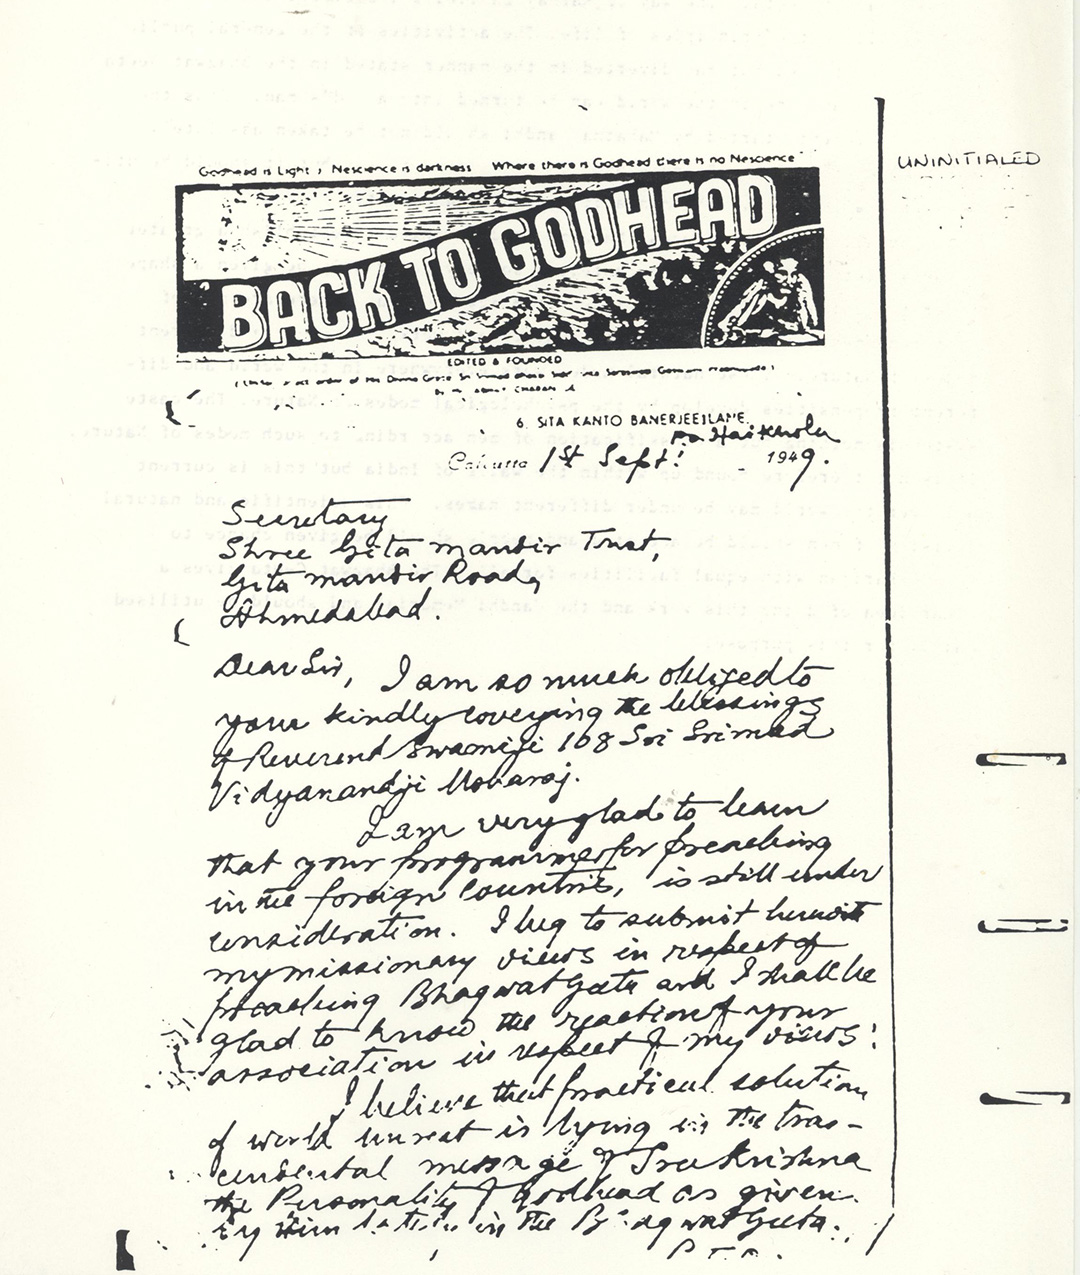 Godhead is Light, Nescience is darkness Where there is Godhead there is no Nescience
UNINITIALED
BACK TO GODHEAD
EDITED & FOUNDED
6, SITA KANTO BANERJEE LANE.
P.O. Hatkhola
Calcutta 1st Sept. 1949.
Secretary
Shree Gita mandir Trust,
Gita mandir Road,
Ahmedabad.
Dear Sir, I am so much obliged to
your kindly coveying the blessings
of Reverend Swamiji 108 Sri Srimad
Vidyanandji Moharaj.
I am very glad to learn
that your programme for preaching
in the foreign countries, is still under
consideration. I beg to submit herewith
my missionary views in respect of
preaching Bhagwat Geeta and I shall be
glad to know the reaction of your
association in respect of my views.
I believe that practical solution
of world unrest is lying in the tran-
cendental message of Sree Krishna
the Personality of Godhead as given
by Him in the Bhagwat Geeta.
P.T.O.